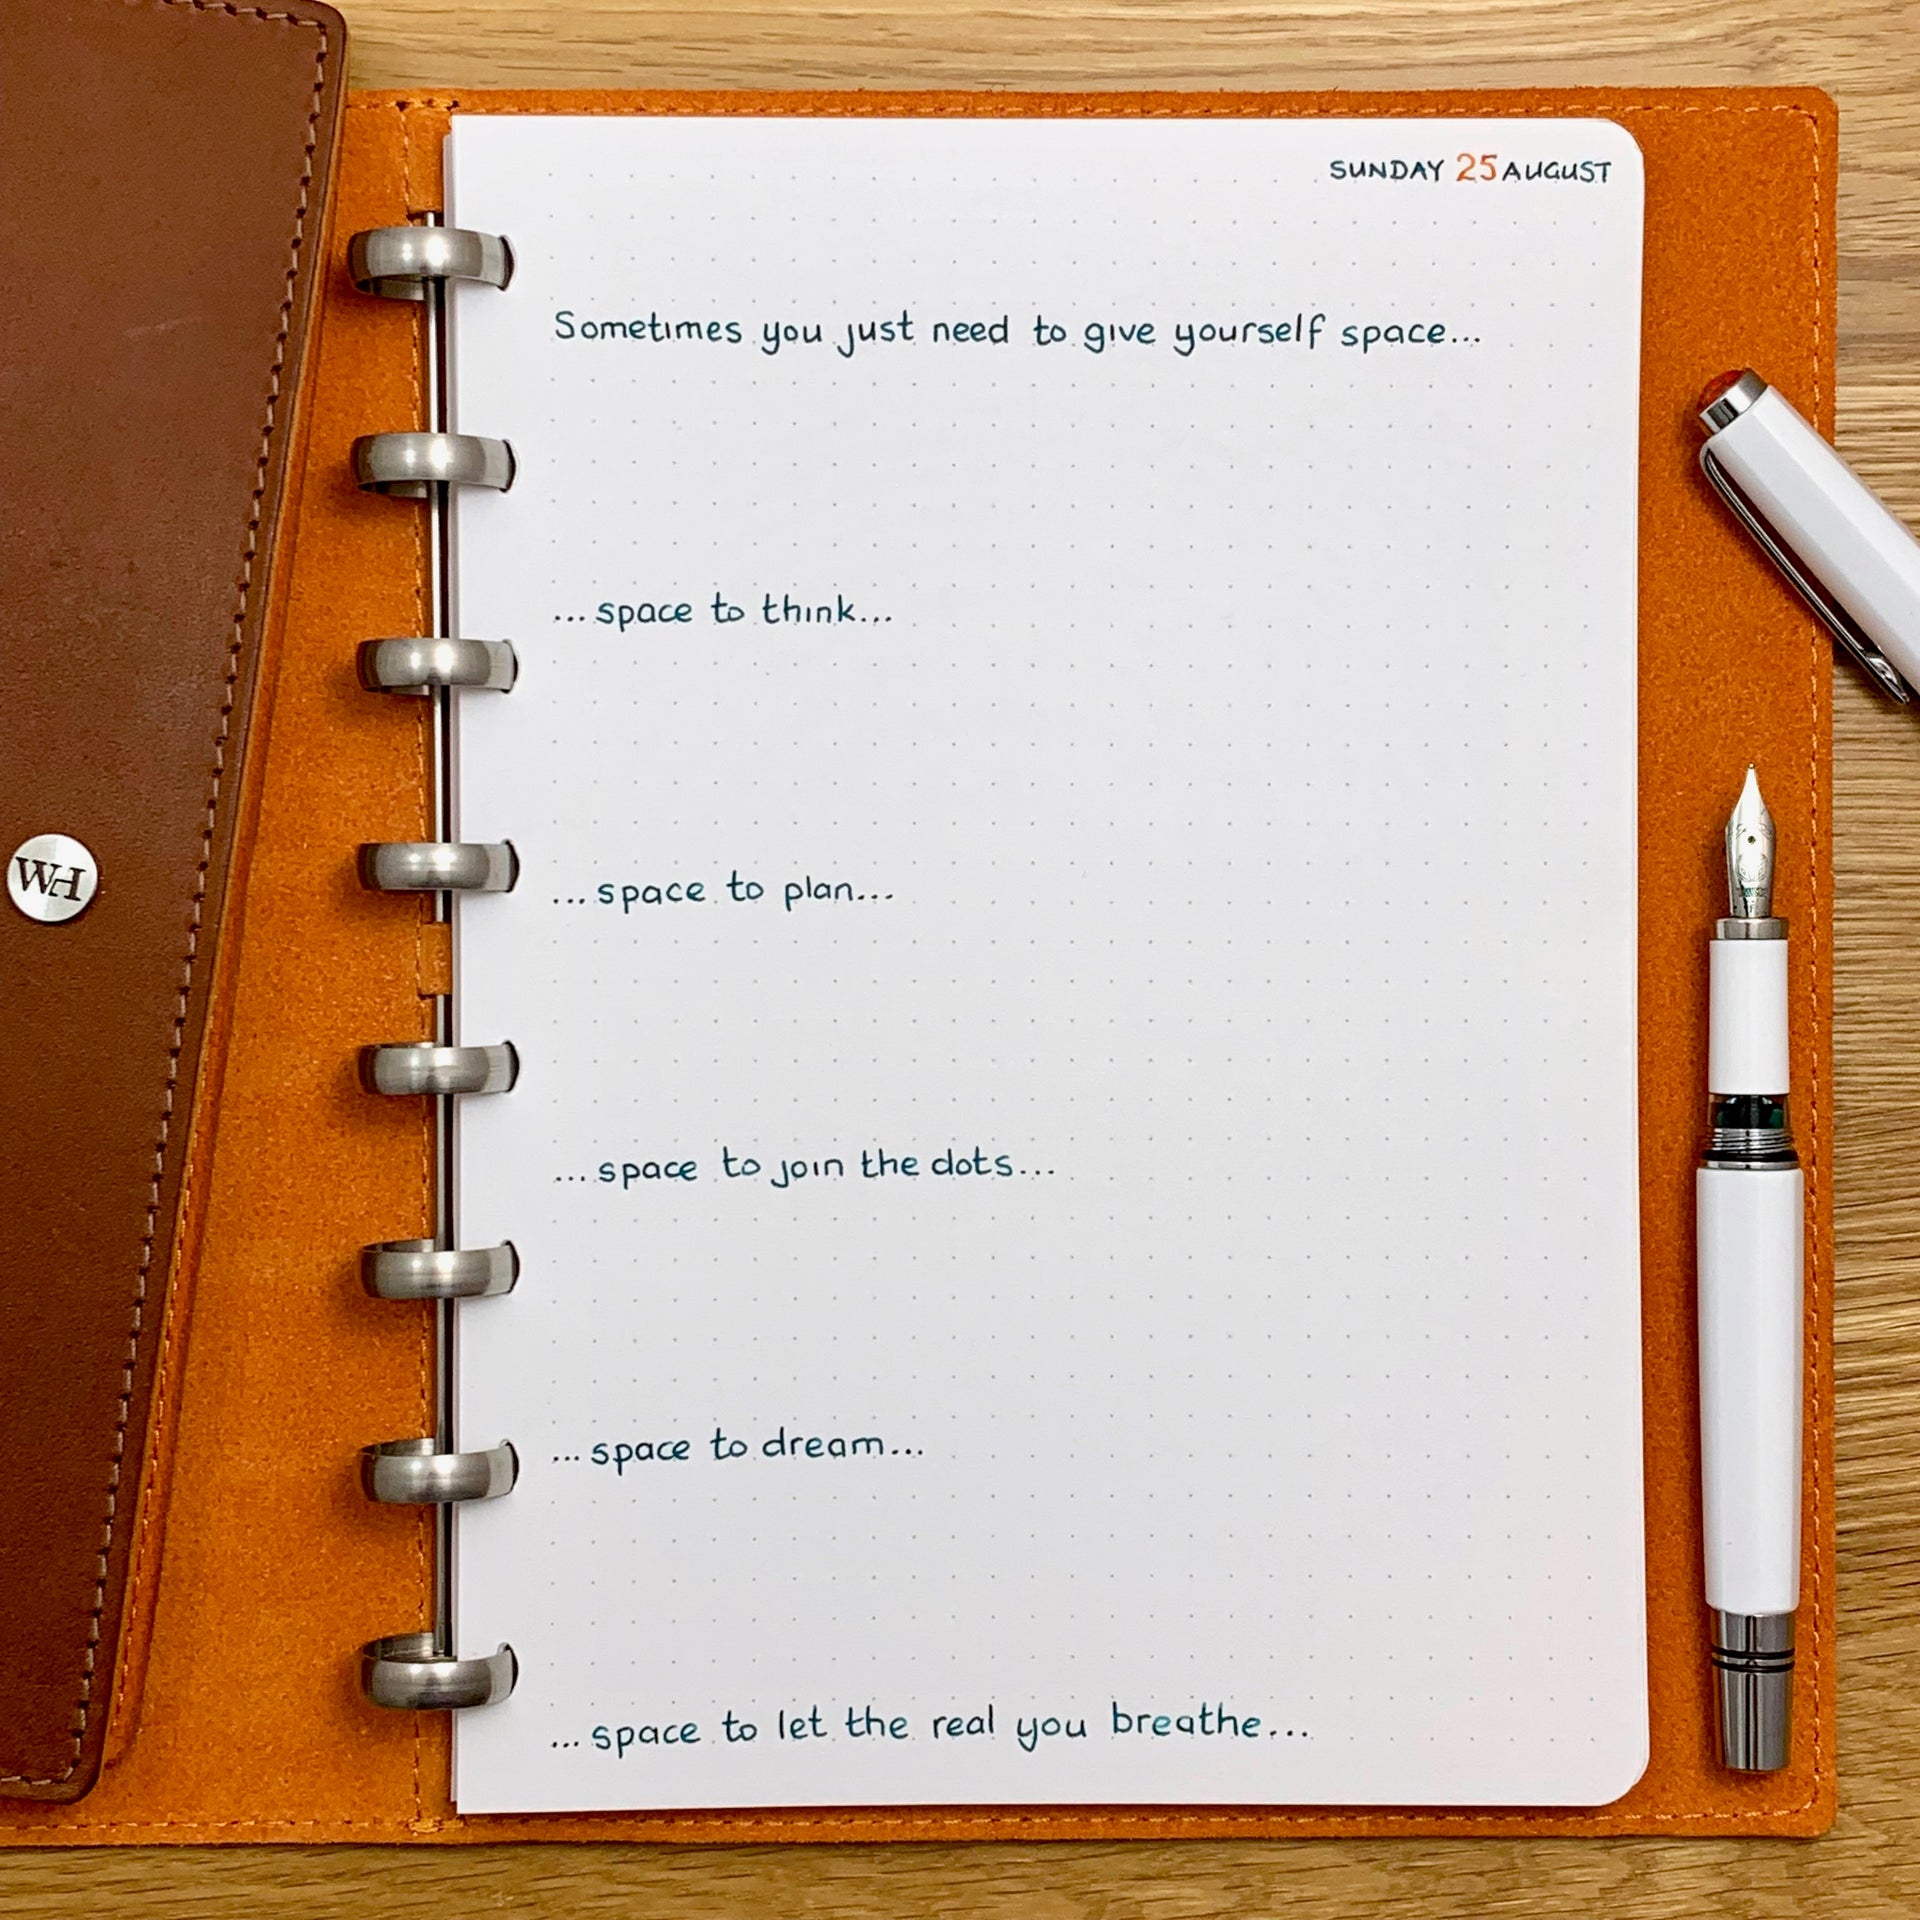 SUNDAY 25 AUGUST
Sometimes you just need to give yourself space...
...space to think...
...space to plan...
WH
...space to join the dots...
...space to dream...
...space to let the real you breathe...